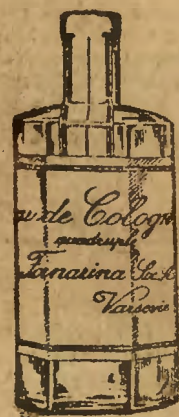 au de Cologn
quadruple
Tanarina
Varsovie